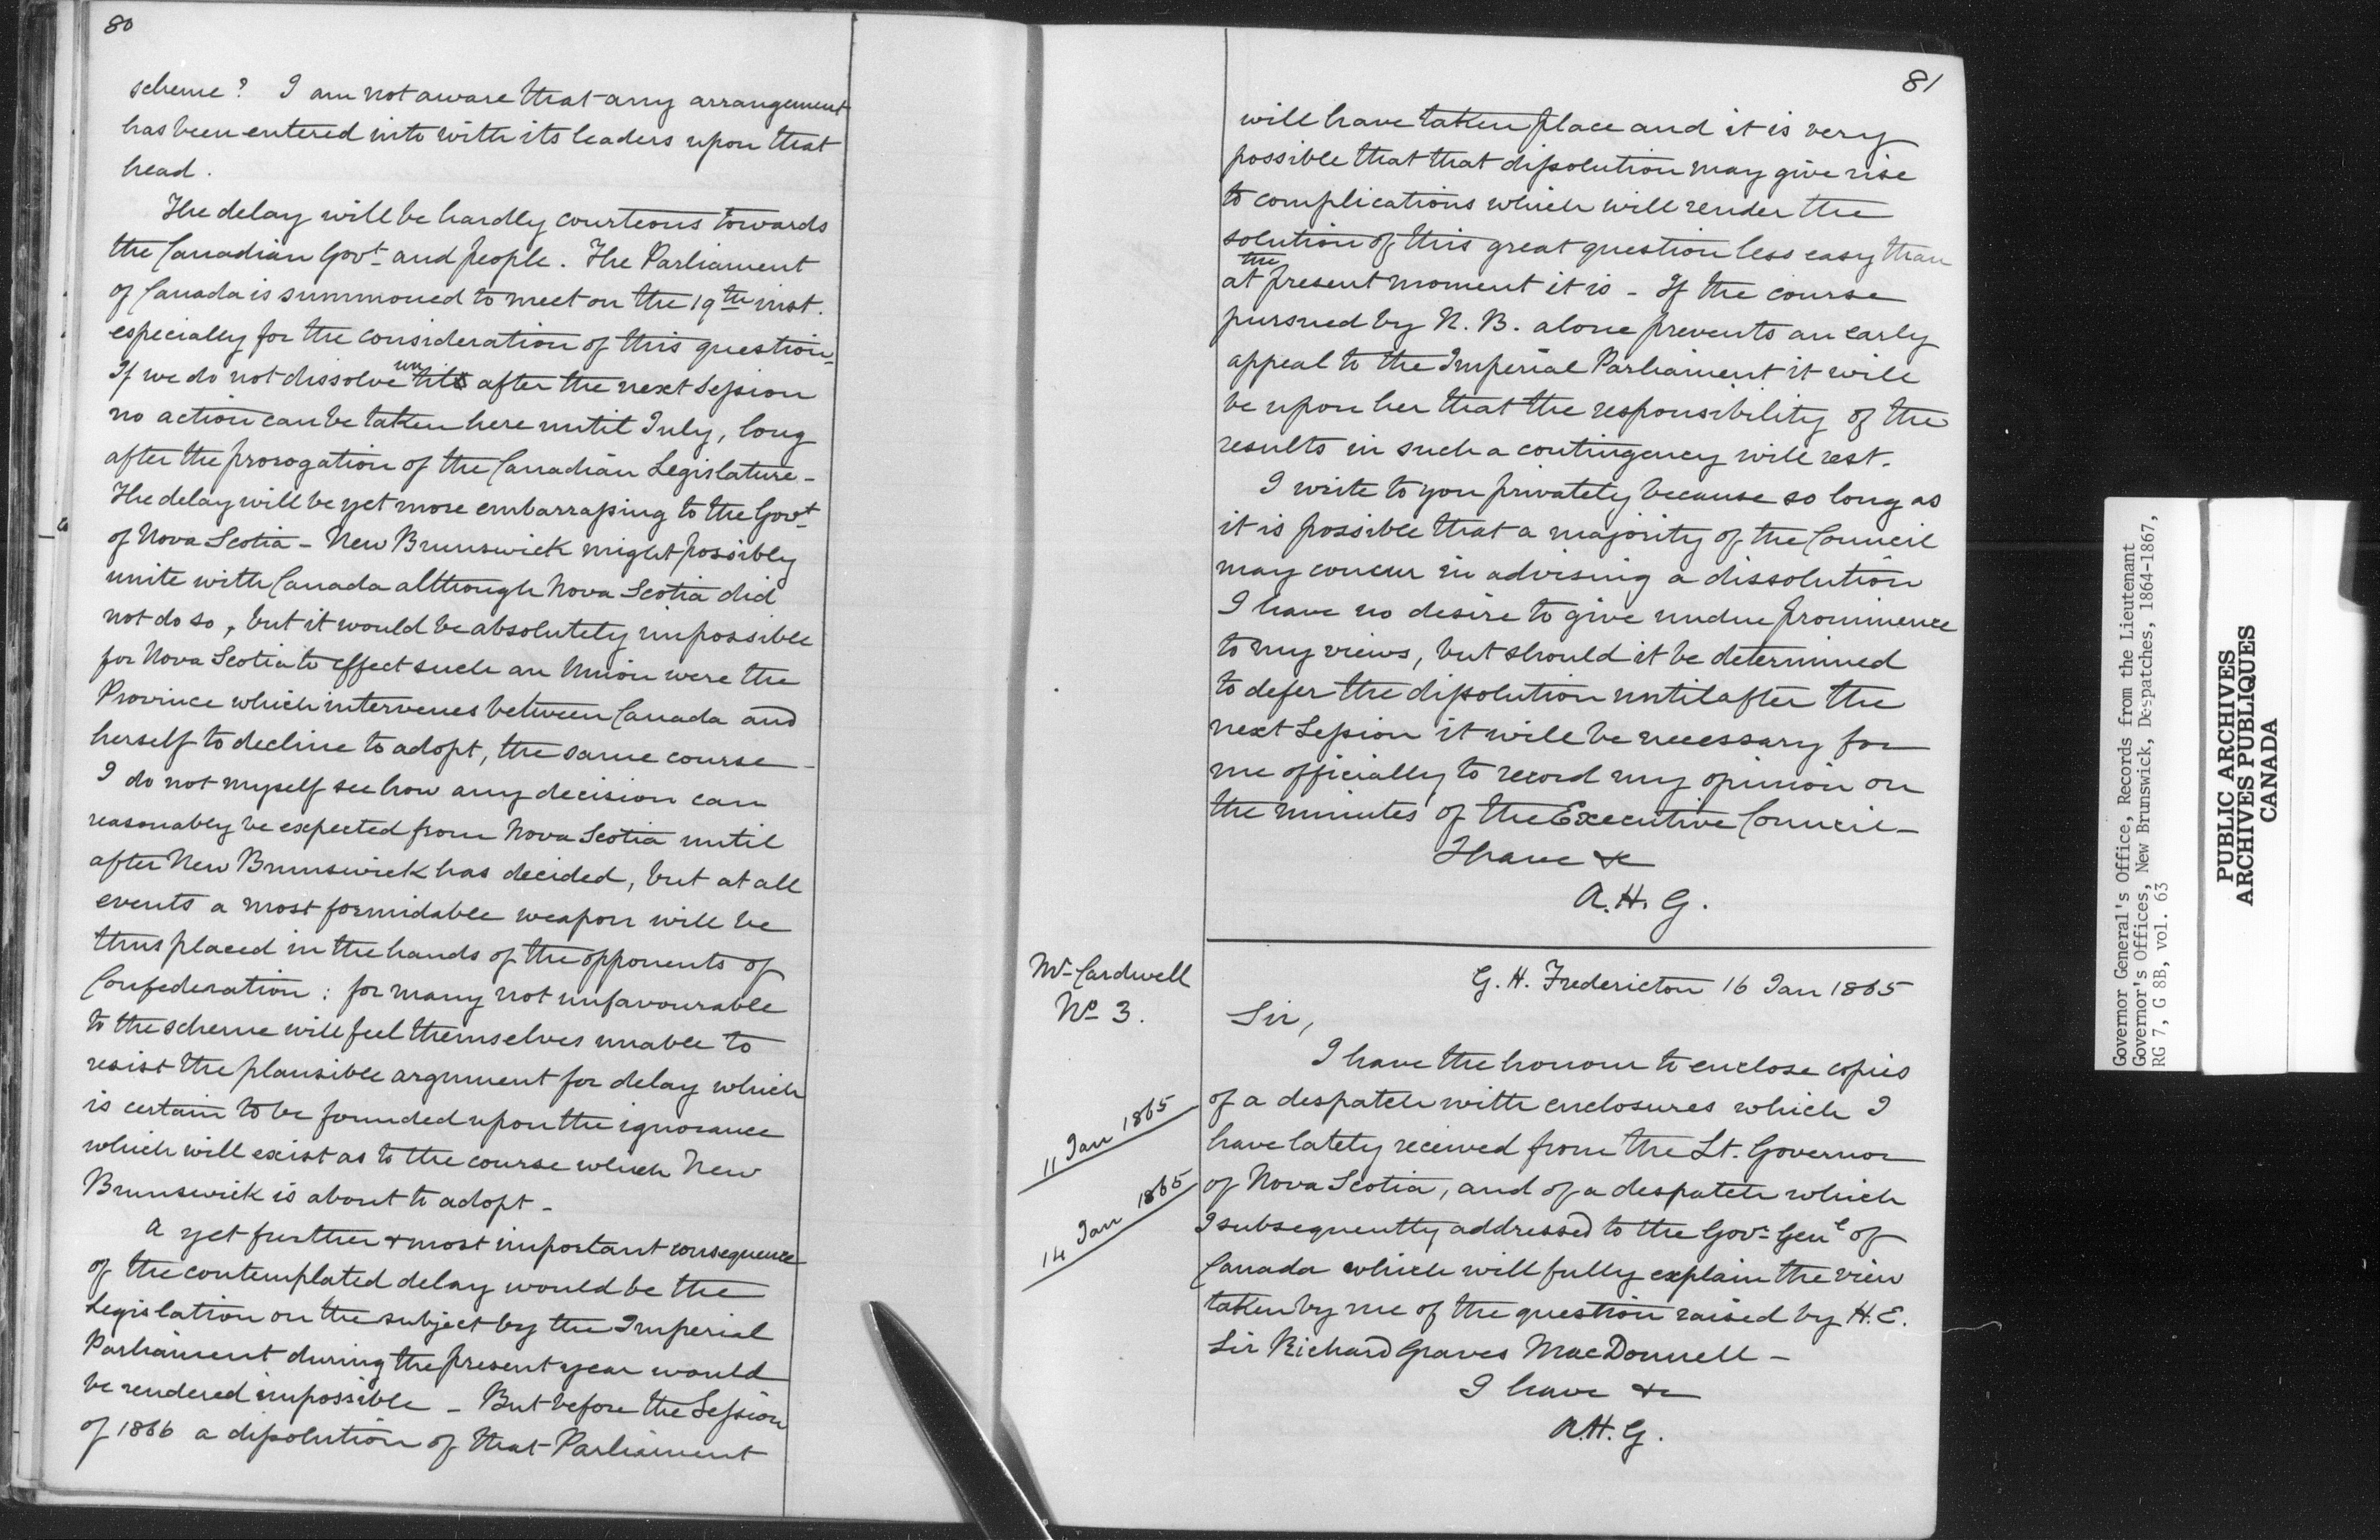 80
scheme? I am not aware that any arrangement
has been entered into with its leaders upon that
head.
The delay will be hardly courteous towards
the Canadian Govt. and people. The Parliament
of Canada is summoned to meet on the 19th inst.
especially for the consideration of this question_
If we do not dissolve until after the next Session
no action can be taken here until July, long
after the prorogation of the Canadian Legislature -
The delay will be yet more embarrassing to the Govt.
of Nova Scotia - New Brunswick might possibly
unite with Canada although Nova Scotia did
not do so, but it would be absolutely impossible
for Nova Scotia to effect such an Union were the
Province which intervenes between Canada and
herself to decline to adopt, the same course -
I do not myself see how any decision can
reasonably be expected from Nova Scotia until
after New Brunswick has decided, but at all
events a most formidable weapon will be
thus placed in the hands of the opponents of
Confederation: for many not unfavourable
to the scheme will feel themselves unable to
resist the plausible argument for delay which
is certain to be founded upon the ignorance
which will exist as to the course which New
Brunswick is about to adopt -
A yet further & most important consequence
of the contemplated delay would be the
Legislation on the subject by the Imperial
Parliament during the present year would
be rendered impossible - But before the Session
of 1866 a dissolution of that Parliament
81
will have taken place and it is very
possible that that dissolution may give rise
to complications which will render the
solution of this great question less easy than
at the present moment it is - If the course
pursued by N. B. alone prevents an early
appeal to the Imperial Parliament it will
be upon her that the responsibility of the
results in such a contingency will rest.
I write to you privately because so long as
it is possible that a majority of the Council
may concur in advising a dissolution
I have no desire to give undue prominence
to my views, but should it be determined
to defer the dissolution until after the
next Session it will be necessary for
me officially to record my opinion on
the minutes of the Executive Council -
I have &c
A. H. G.
Mr Cardwell
No 3.
G. H. Fredericton 16 Jan 1865
Sir,
I have the honour to enclose copies
11 Jan 1865
of a despatch with enclosures which I
have lately received from the Lt. Governor
14 Jan 1865
of Nova Scotia, and of a despatch which
I subsequently addressed to the Govr. Genl of
Canada which will fully explain the view
taken by me of the question raised by H. E.
Sir Richard Graves MacDonnell -
I have &c
A.H.G.
Governor General's Office, Records from the Lieutenant
Governor's Offices, New Brunswick, Despatches, 1864-1867,
RG 7, G 8B, vol. 63
PUBLIC ARCHIVES
ARCHIVES PUBLIQUES
CANADA